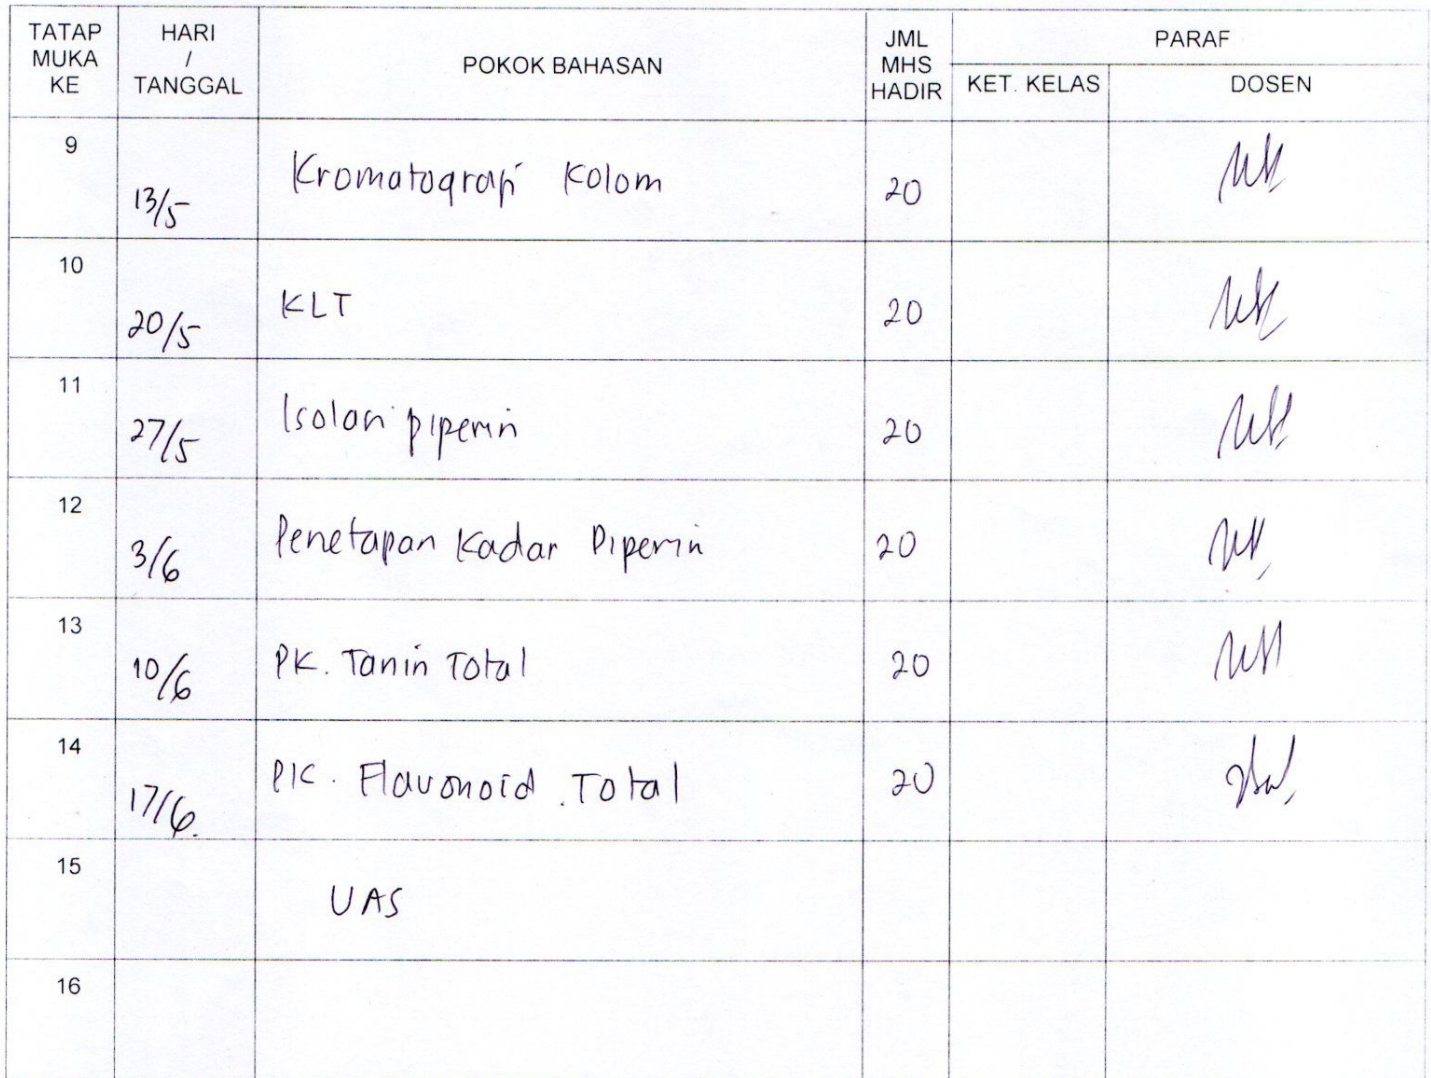 TATAP MUKA KE HARI / TANGGAL POKOK BAHASAN JML MHS HADIR PARAF
KET. KELAS DOSEN
9 13/5 Kromatografi Kolom 20
10 20/5 KLT 20
11 27/5 Isolasi piperin 20
12 3/6 Penetapan Kadar Piperin 20
13 10/6 PK. Tanin Total 20
14 17/6. PK. Flavonoid .Total 20
15 UAS
16